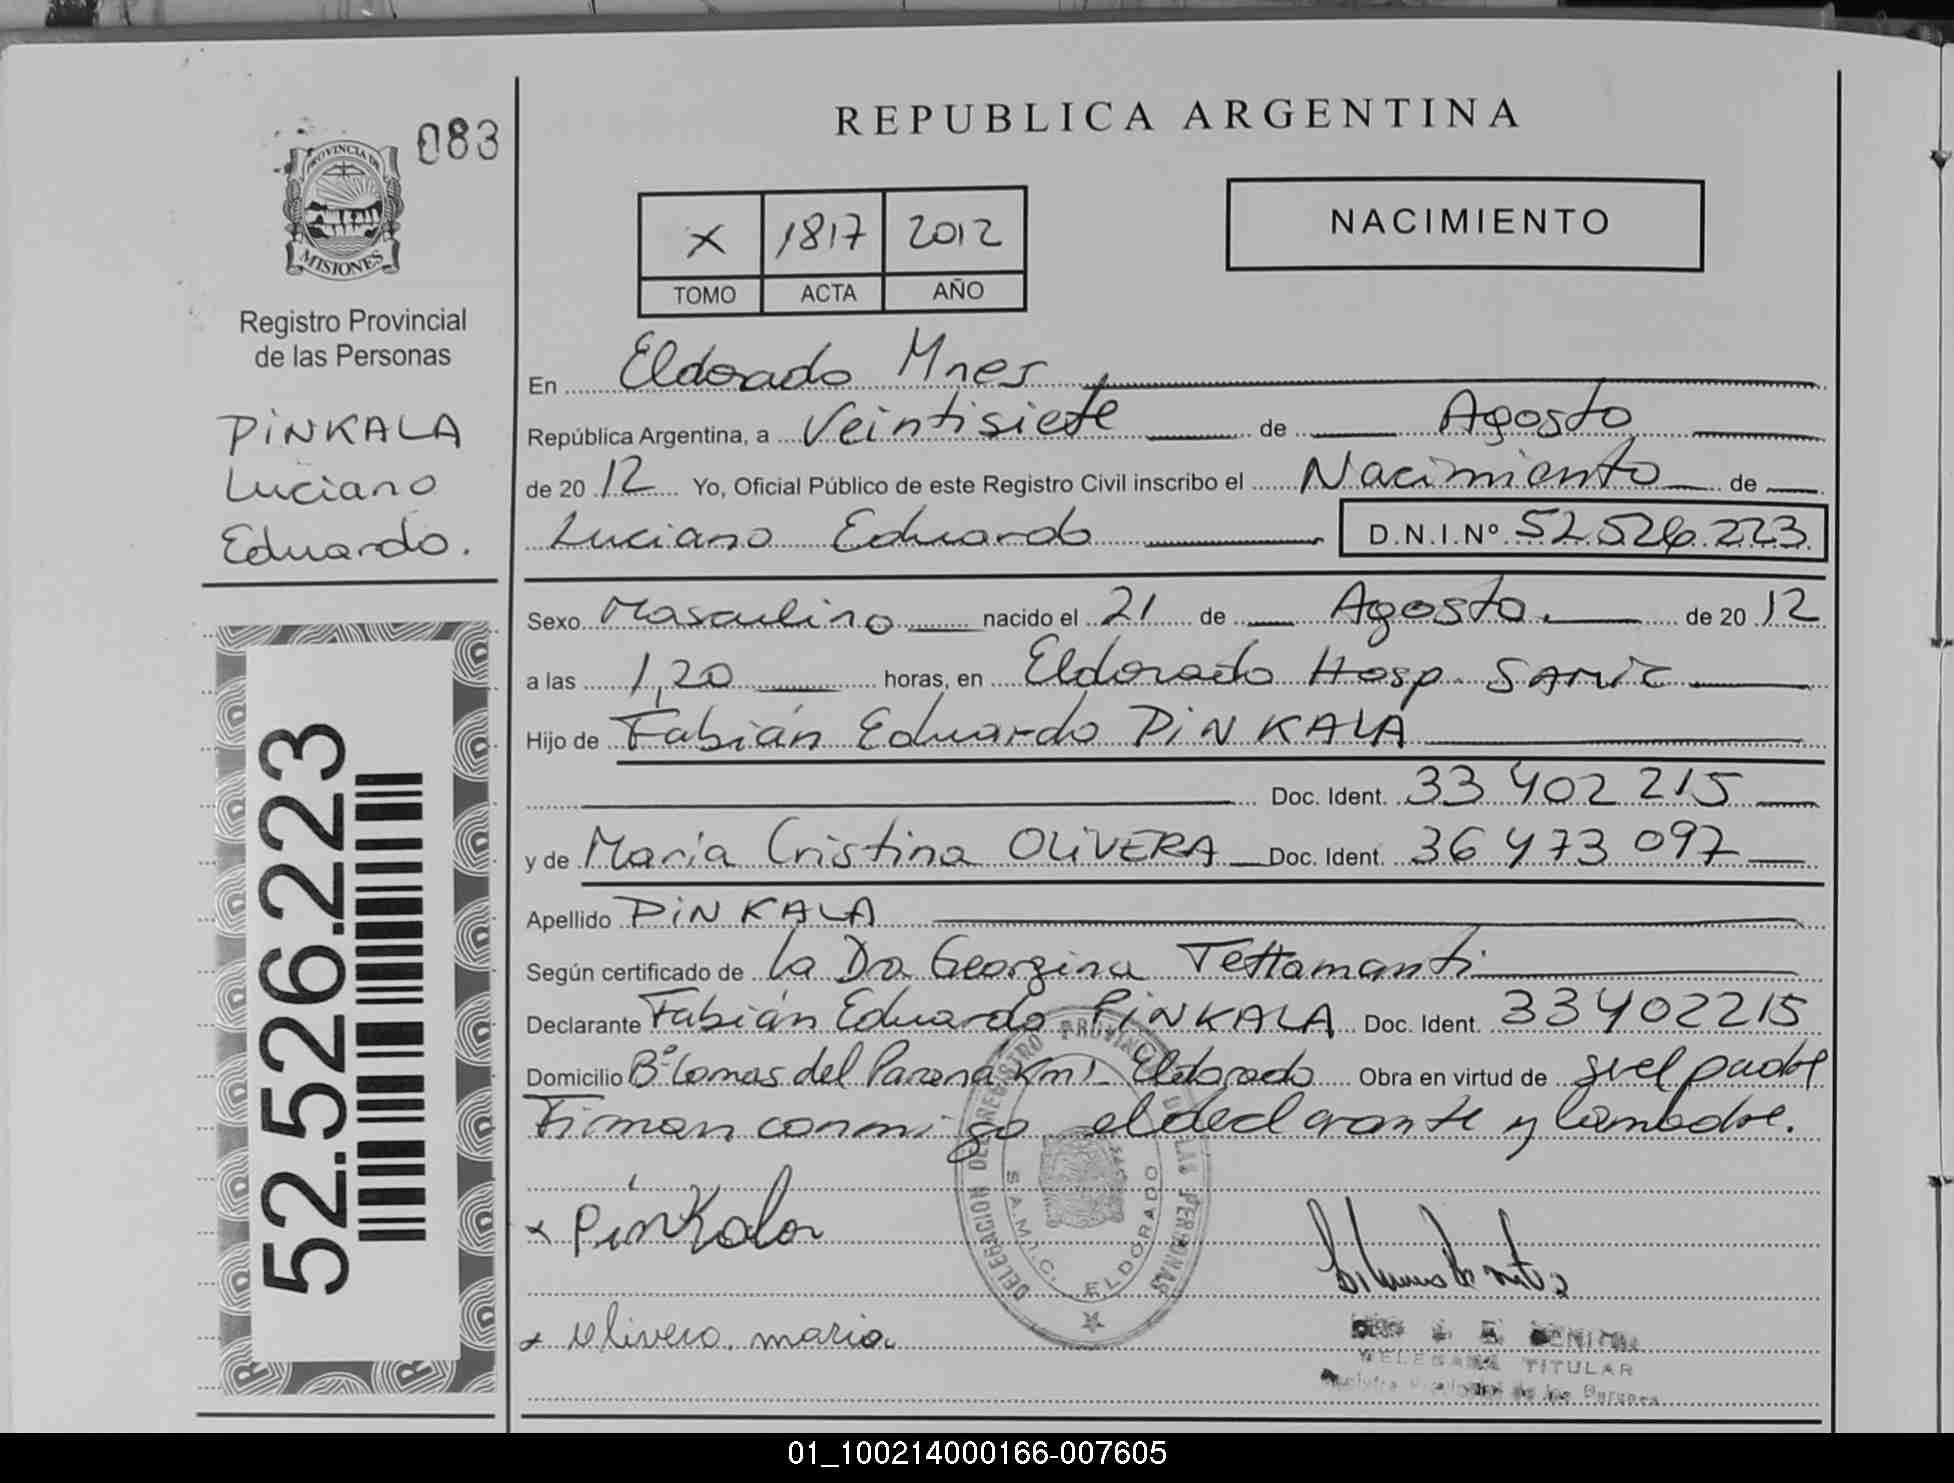 083
PROVINCIA DE
MISIONES
Registro Provincial
de las Personas
PiNKALA
Luciano
Eduardo.
52.526.223
REPUBLICA ARGENTINA
X 1817 2012
TOMO ACTA AÑO
NACIMIENTO
En Eldorado Mnes
República Argentina, a Veintisiete de Agosto
de 2012 Yo, Oficial Público de este Registro Civil inscribo el Nacimiento de
Luciano Eduardo D.N.I.Nº 52.526.223
Sexo Masculino nacido el 21 de Agosto. de 2012
a las 1,20 horas, en Eldorado Hosp. SAMiC
Hijo de Fabián Eduardo PiNKALA
Doc. Ident. 33 402 215
y de María Cristina OLiVERA Doc. Ident. 36 473 097
Apellido PiNKALA
Según certificado de la Dra Georgina Tettamanti
Declarante Fabián Eduardo PiNKALA Doc. Ident. 33402215
Domicilio Bº Lomas del Parana Km 1 Eldorado Obra en virtud de ser el padre
Firman conmigo el declarante y la madre.
DELEGACION DEL REGISTRO PROVINCIAL DE LAS PERSONAS
S.A.M.I.C. ELDORADO
x Pinkala
x olivera. maria
TITULAR
de las
01_100214000166-007605